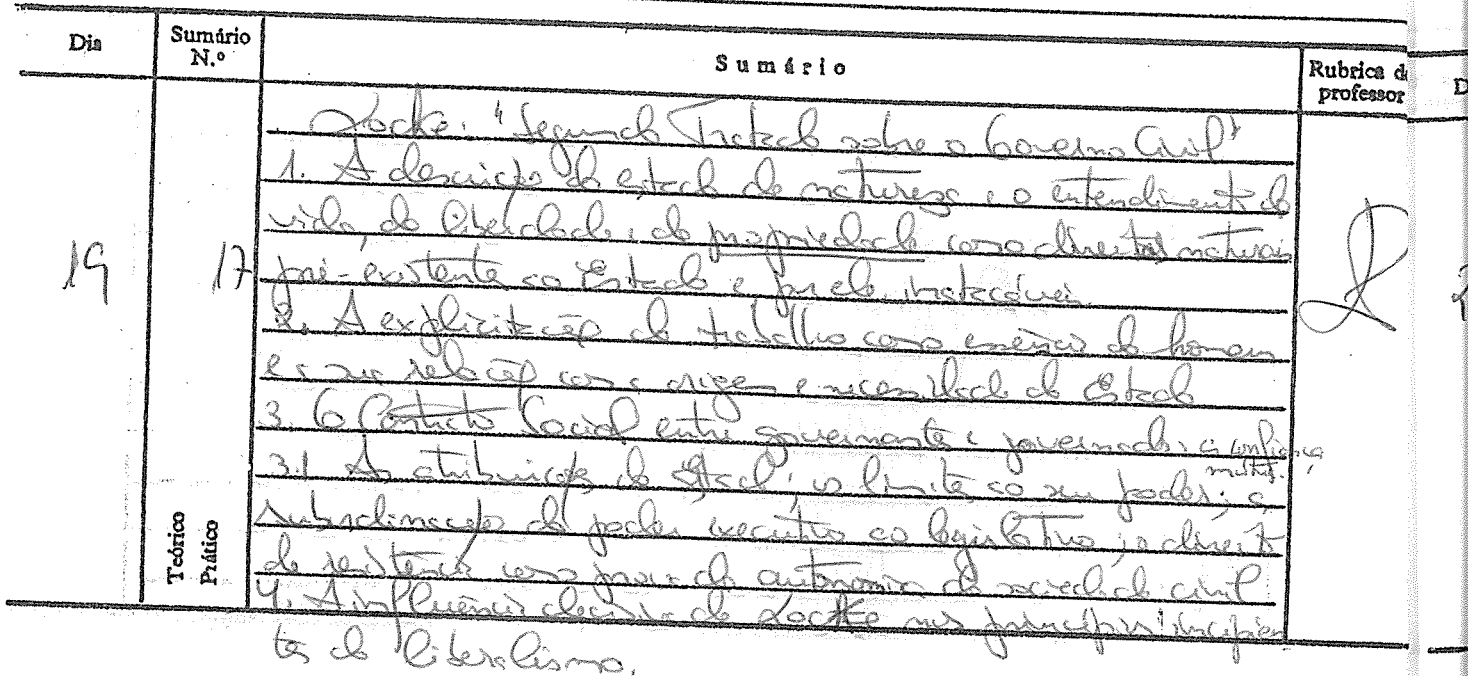 Dia
Sumário N.º
Sumário
Rubrica d
professor
D
Locke: "Segundo Tratado sobre o Governo Civil"
1. A descrição do estado de natureza e o entendimento da
vida, da liberdade e da propriedade como direitos naturais
19
17
pré-existentes ao Estado e por ele inatacáveis.
2. A explicitação do trabalho como essência do homem
e a sua relação com a origem e necessidade do Estado
3. O Contrato Social entre governantes e governados: a confiança
mútua.
3.1 As atribuições do Estado; os limites ao seu poder; a
subordinação do poder executivo ao legislativo; o direito
de resistência como prova da autonomia da sociedade civil
Teórico
Prático
4. A influência decisiva de Locke nos princípios incipien
tes do liberalismo.